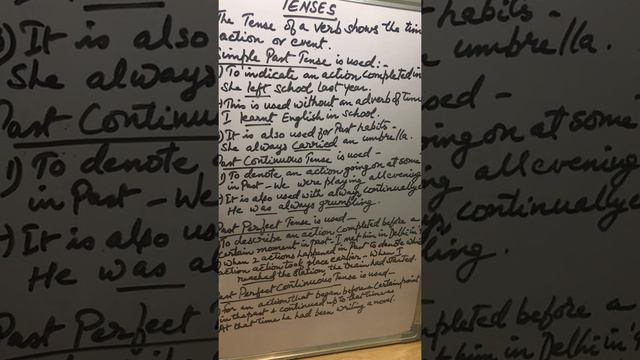 TENSES
The Tense of a verb shows the tim
action or event.
Simple Past Tense is used:-
1) To indicate an action completed in
She left School last year.
2) This is used without an adverb of time
I learnt English in school.
3) It is also used for Past habits-
She always carried an umbrella.
Past Continuous Tense is used-
1) To denote an action going on at some
in Past - We were playing all evening
2) It is also used with always continually e
He was always grumbling.
Past Perfect Tense is used-
To describe an action completed before a
certain moment in past - I met him in Delhi in
When 2 actions happened in Past to denote which
action took place earlier - When I
reached the station the train had started.
Past Perfect Continuous Tense is used-
For an action that began before a certain point
in the past & continued up to that time
At that time he had been writing a novel.
habits-
umbrella.
) It is also
She always
Past Continuou
1) To denote
in Past - We
) It is also us
He was al
Past Perfect
used-
going on at some
all evening
continually e
mpleted before a
in Delhi in